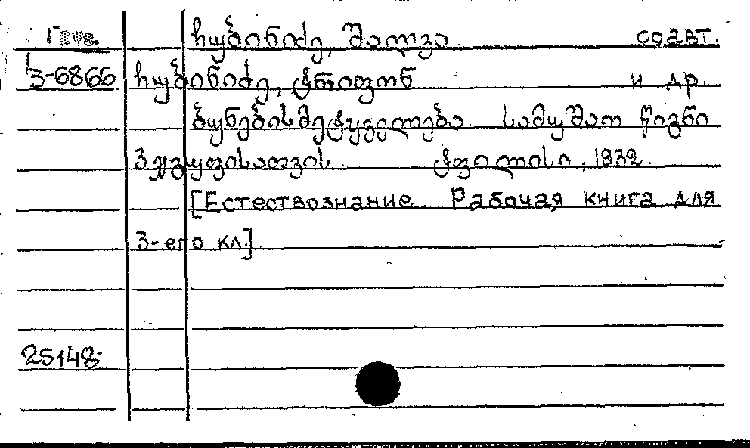 Груз. ჩუბინიძე, შალვა соавт.
3-6866 ჩუბინიძე, ტრიფონ и др.
ბუნებისმეტყველება სამუშაო წიგნი
3 ჯგუფისათვის. ტფილისი, 1932.
[Естествознание. Рабочая книга для
3-его кл.]
25148-